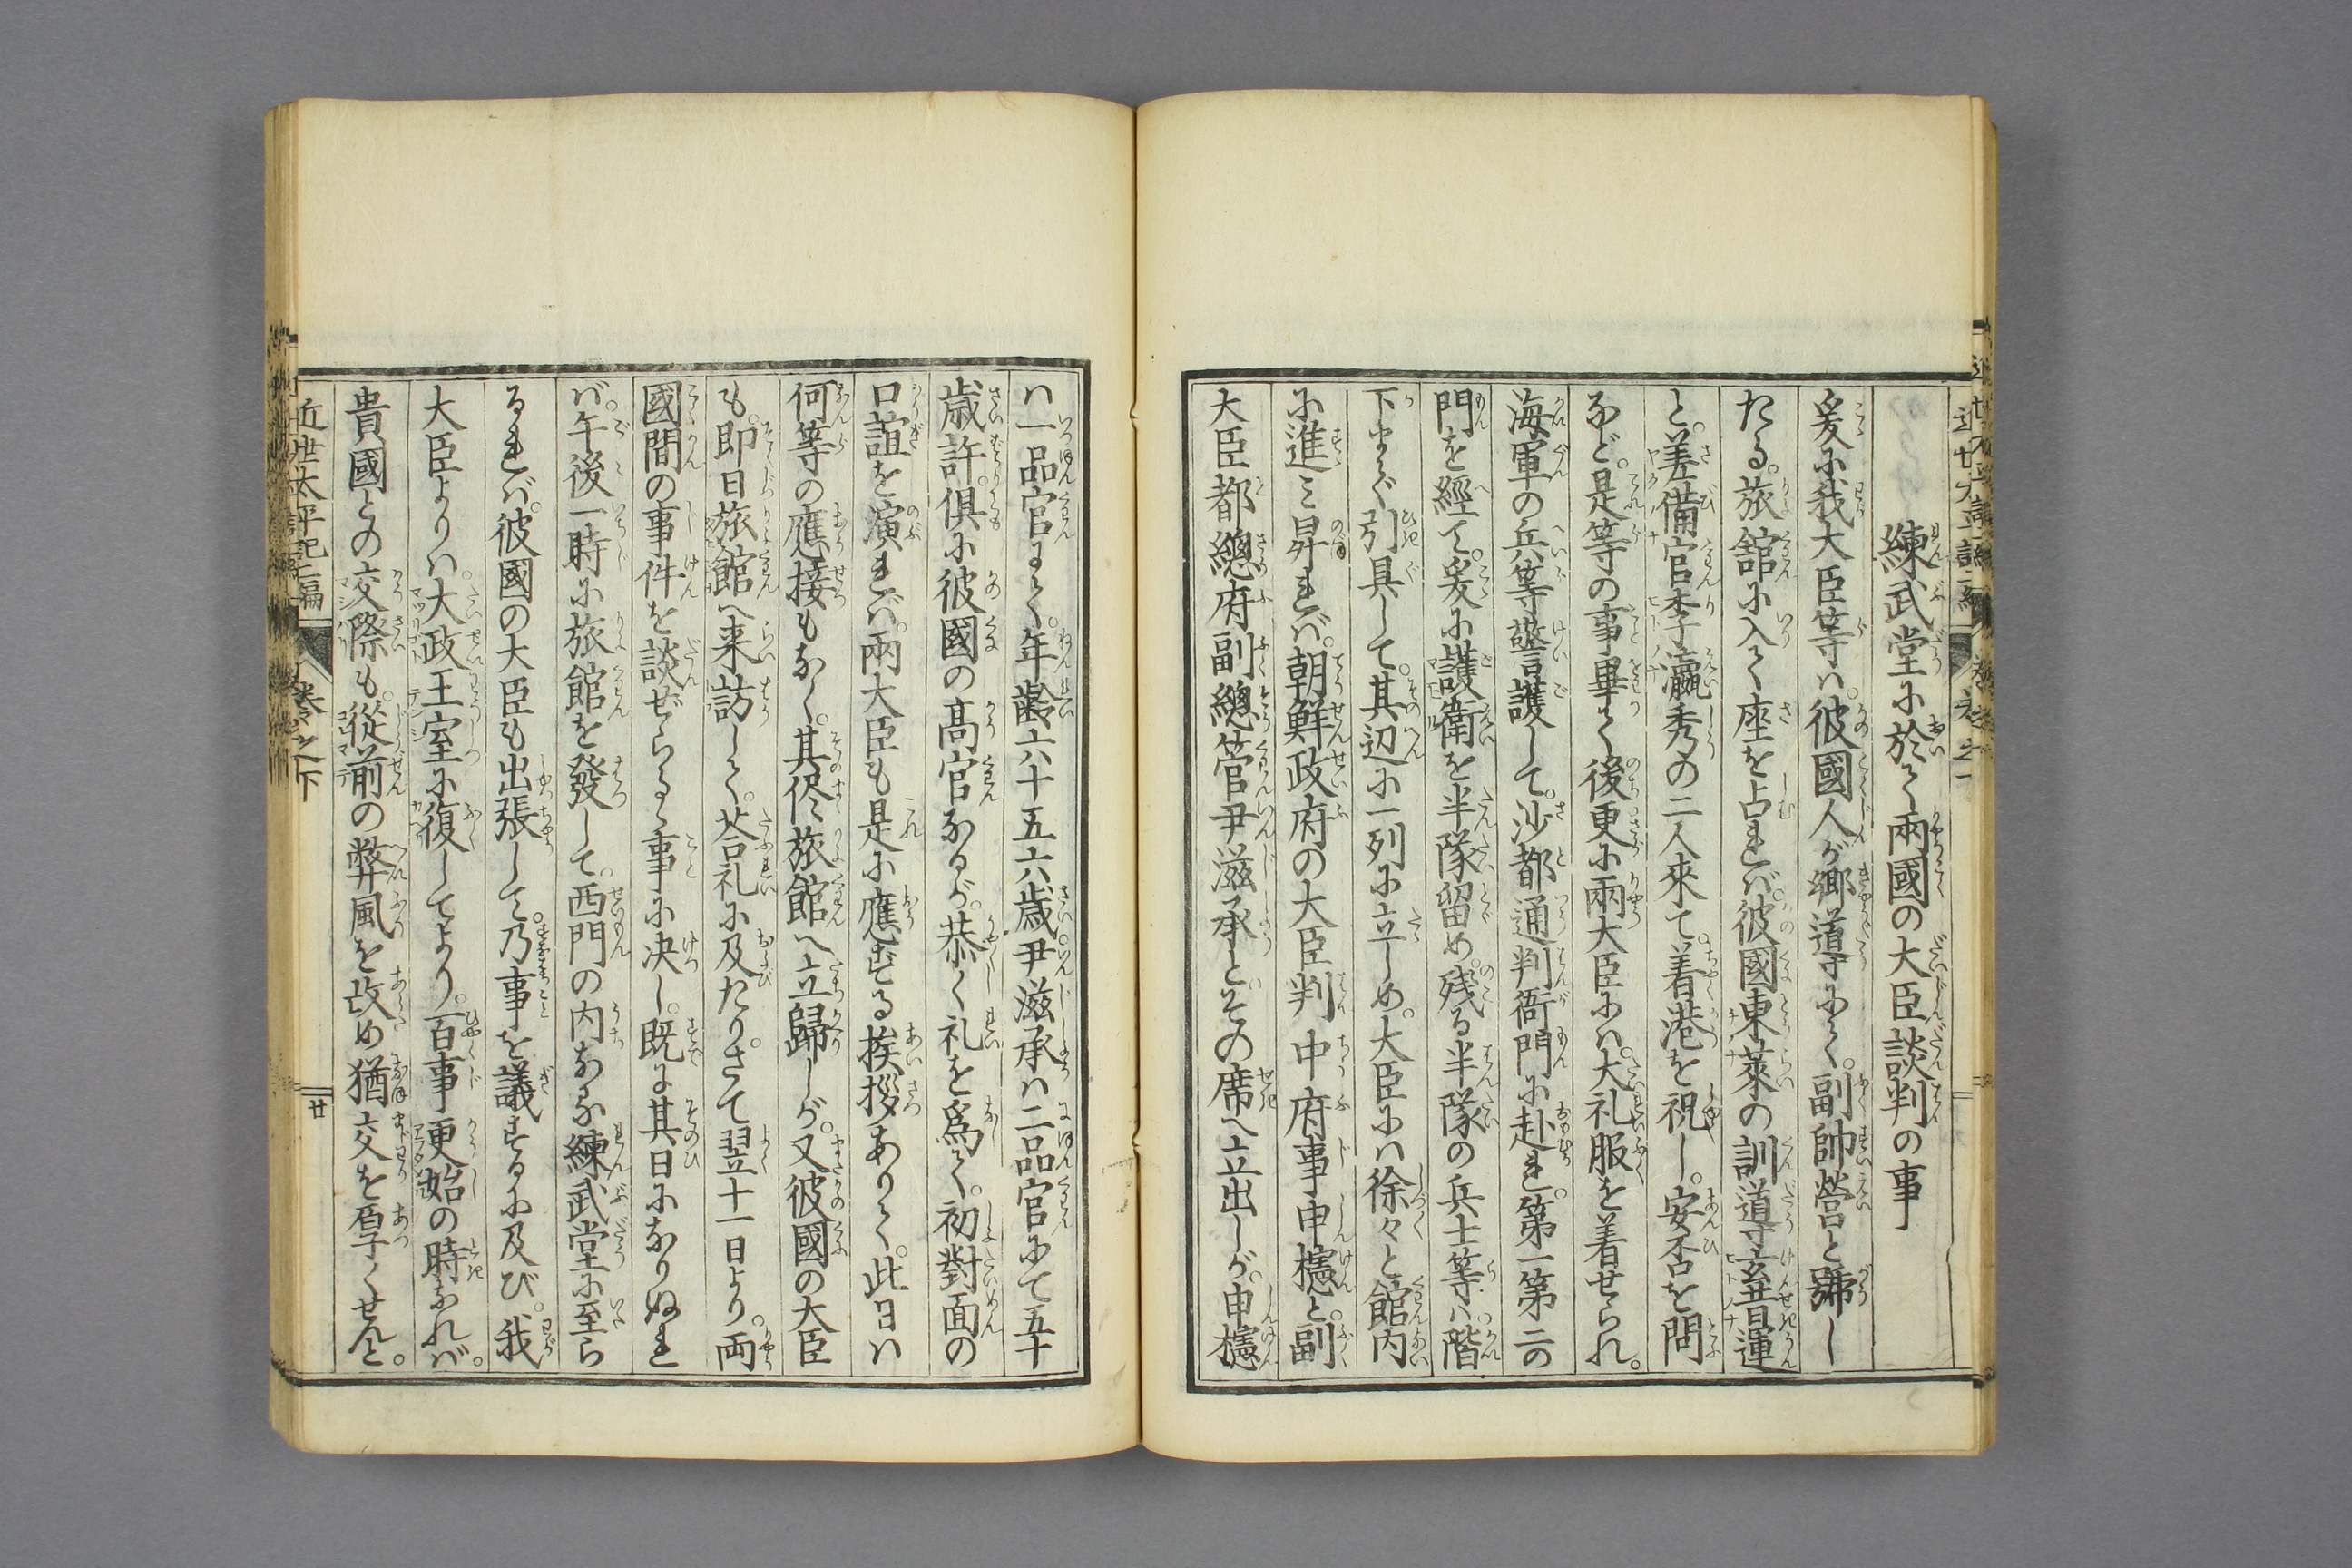 練武堂に於て兩國の大臣談判の事
爰に我大臣等ハ。彼國人が郷導にて。副帥營と號し
たる。旅舘に入て座を占れバ。彼國東萊の訓導玄昔運
と。差備官李瀛秀の二人來て。着港を祝し。安否を問
など。是等の事畢て後更に兩大臣にハ。大礼服を着せられ。
海軍の兵等警護して。沙都通判衙門に赴れ。第一第二の
門を經て。爰に護衛を半隊留め。残る半隊の兵士等ハ。階
下まで引具して。其辺に一列に立しめ。大臣にハ徐々と館内
に進ミ昇れバ。朝鮮政府の大臣判中府事申櫶と。副
大臣都總府副總管尹滋承とその席へ立出しが。申櫶
ハ一品官にて。年齢六十五六歳。尹滋承ハ二品官にて五十
歳許。倶に彼國の高官なるが。恭く礼を爲て。初對面の
口誼を演れバ。兩大臣も是に應ずる挨拶ありて。此日ハ
何等の應接もなく。其侭旅館へ立歸しが。又彼國の大臣
も。即日旅館へ来訪して。荅礼に及たり。さて翌十一日より。両
國間の事件を談ぜらるゝ事に决し。既に其日になりぬれ
バ。午後一時に旅館を發して。西門の内なる練武堂に至ら
るれバ。彼國の大臣も出張して。乃事を議するに及び。我
大臣よりハ。大政王室に復してより。百事更始の時なれバ。
貴國との交際も。從前の弊風を改め猶交を厚くせんと。
近世太平記二編
巻之下
廿